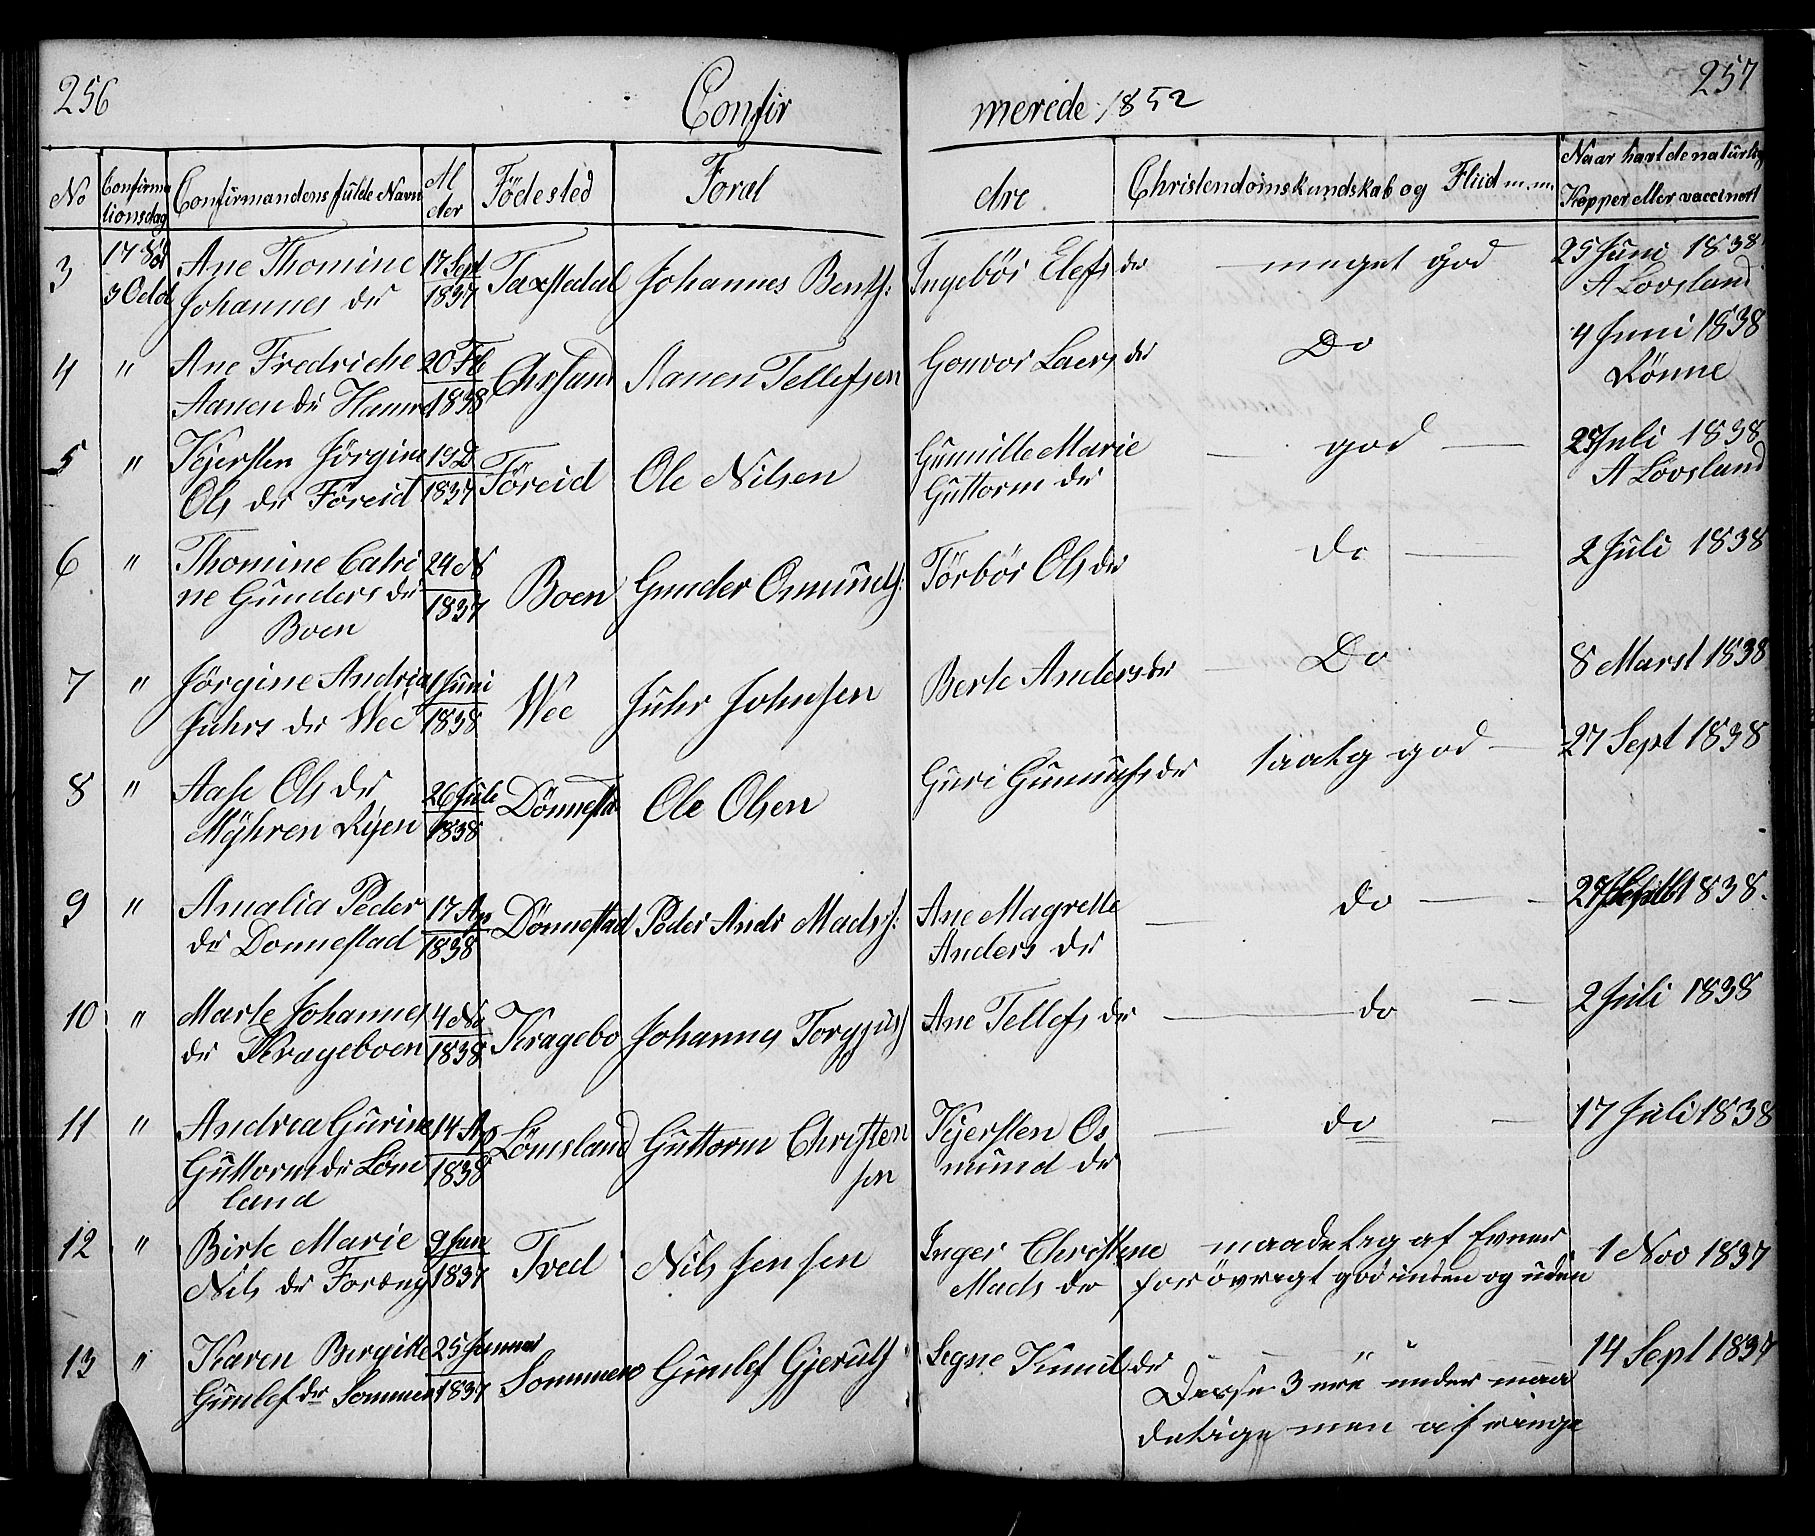 256
Confir
merede 1852
257
No
Confirma
tionsdag
Confirmandens fulde Navn
Al
der
Födested
Foræl
dre
Christendomskundskab og Fliid m.m.
Naar havt de naturlig
Kopper eller vaccinert
3
17 Söd
3 Octd
Ane Thomine
Johannes dr
17 Sept
1837
Taxstadal
Johannes Bents:
Ingebör Elefs dr
meget god
25 Juni 1838
A Lövsland
4
"
Ane Fredriche
Aanen dr Hamre
20 Fb
1838
Chrsand
Aanen Tellefsen
Gonvor Laers dr
Do
4 Juni 1838
Rönne
5
"
Kjersten Jörgine
Ols dr Föreid
13 D
1837
Töreid
Ole Nilsen
Gunnille Marie
Guttorm dr
god
Juli 1838
A Lövsland
6
"
Thomine Catri
ne Gunders dr
Boen
24 N
1837
Boen
Gunder Osmunds:
Törbör Ols dr
do
2 Juli 1838
7
"
Jörgine Andria
Juhrs dr Wee
1 Juni
1838
Wee
Juhr Johnsen
Berte Anders dr
Do
8 Marst 1838
8
"
Aase Ols dr
Myhren Ryen
26 Juli
1838
Dönnesta
Ole Olsen
Guri dr
god
27 Sept 1838
9
"
Amalia Peder
dr Donnestad
17 Ap
1838
Dönnestad
Peder Andr Mads:
Ane Magrette
Anders dr
do
1838
10
"
Marte Johannes
dr Krageboen
4
1838
Kragebo
Johannes Torgjus
Ane Tellefs dr
do
2 Juli 1838
11
"
Andrea Gurine
Guttorm dr Löm
land
14 Ap
1838
Lömsland
Guttorm Christen
sen
Kjersten Os
mund dr
do
17 Juli 1838
12
"
Birte Marie
Nils dr Foræng
9 Juni
1837
Tved
Nils Jensen
Inger Christene
Mads dr
maadelig af Evner
for övrigt god inden og uden
1 Nov 1837
13
"
Karen Birgitte
Gunlef dr Sommer
25 Januar
1837
Sommero
Gunlef Gjeruls
Segne Knuds dr
" "
Disse 3 ere under maa
delige men af ringe
14 Sept 1837